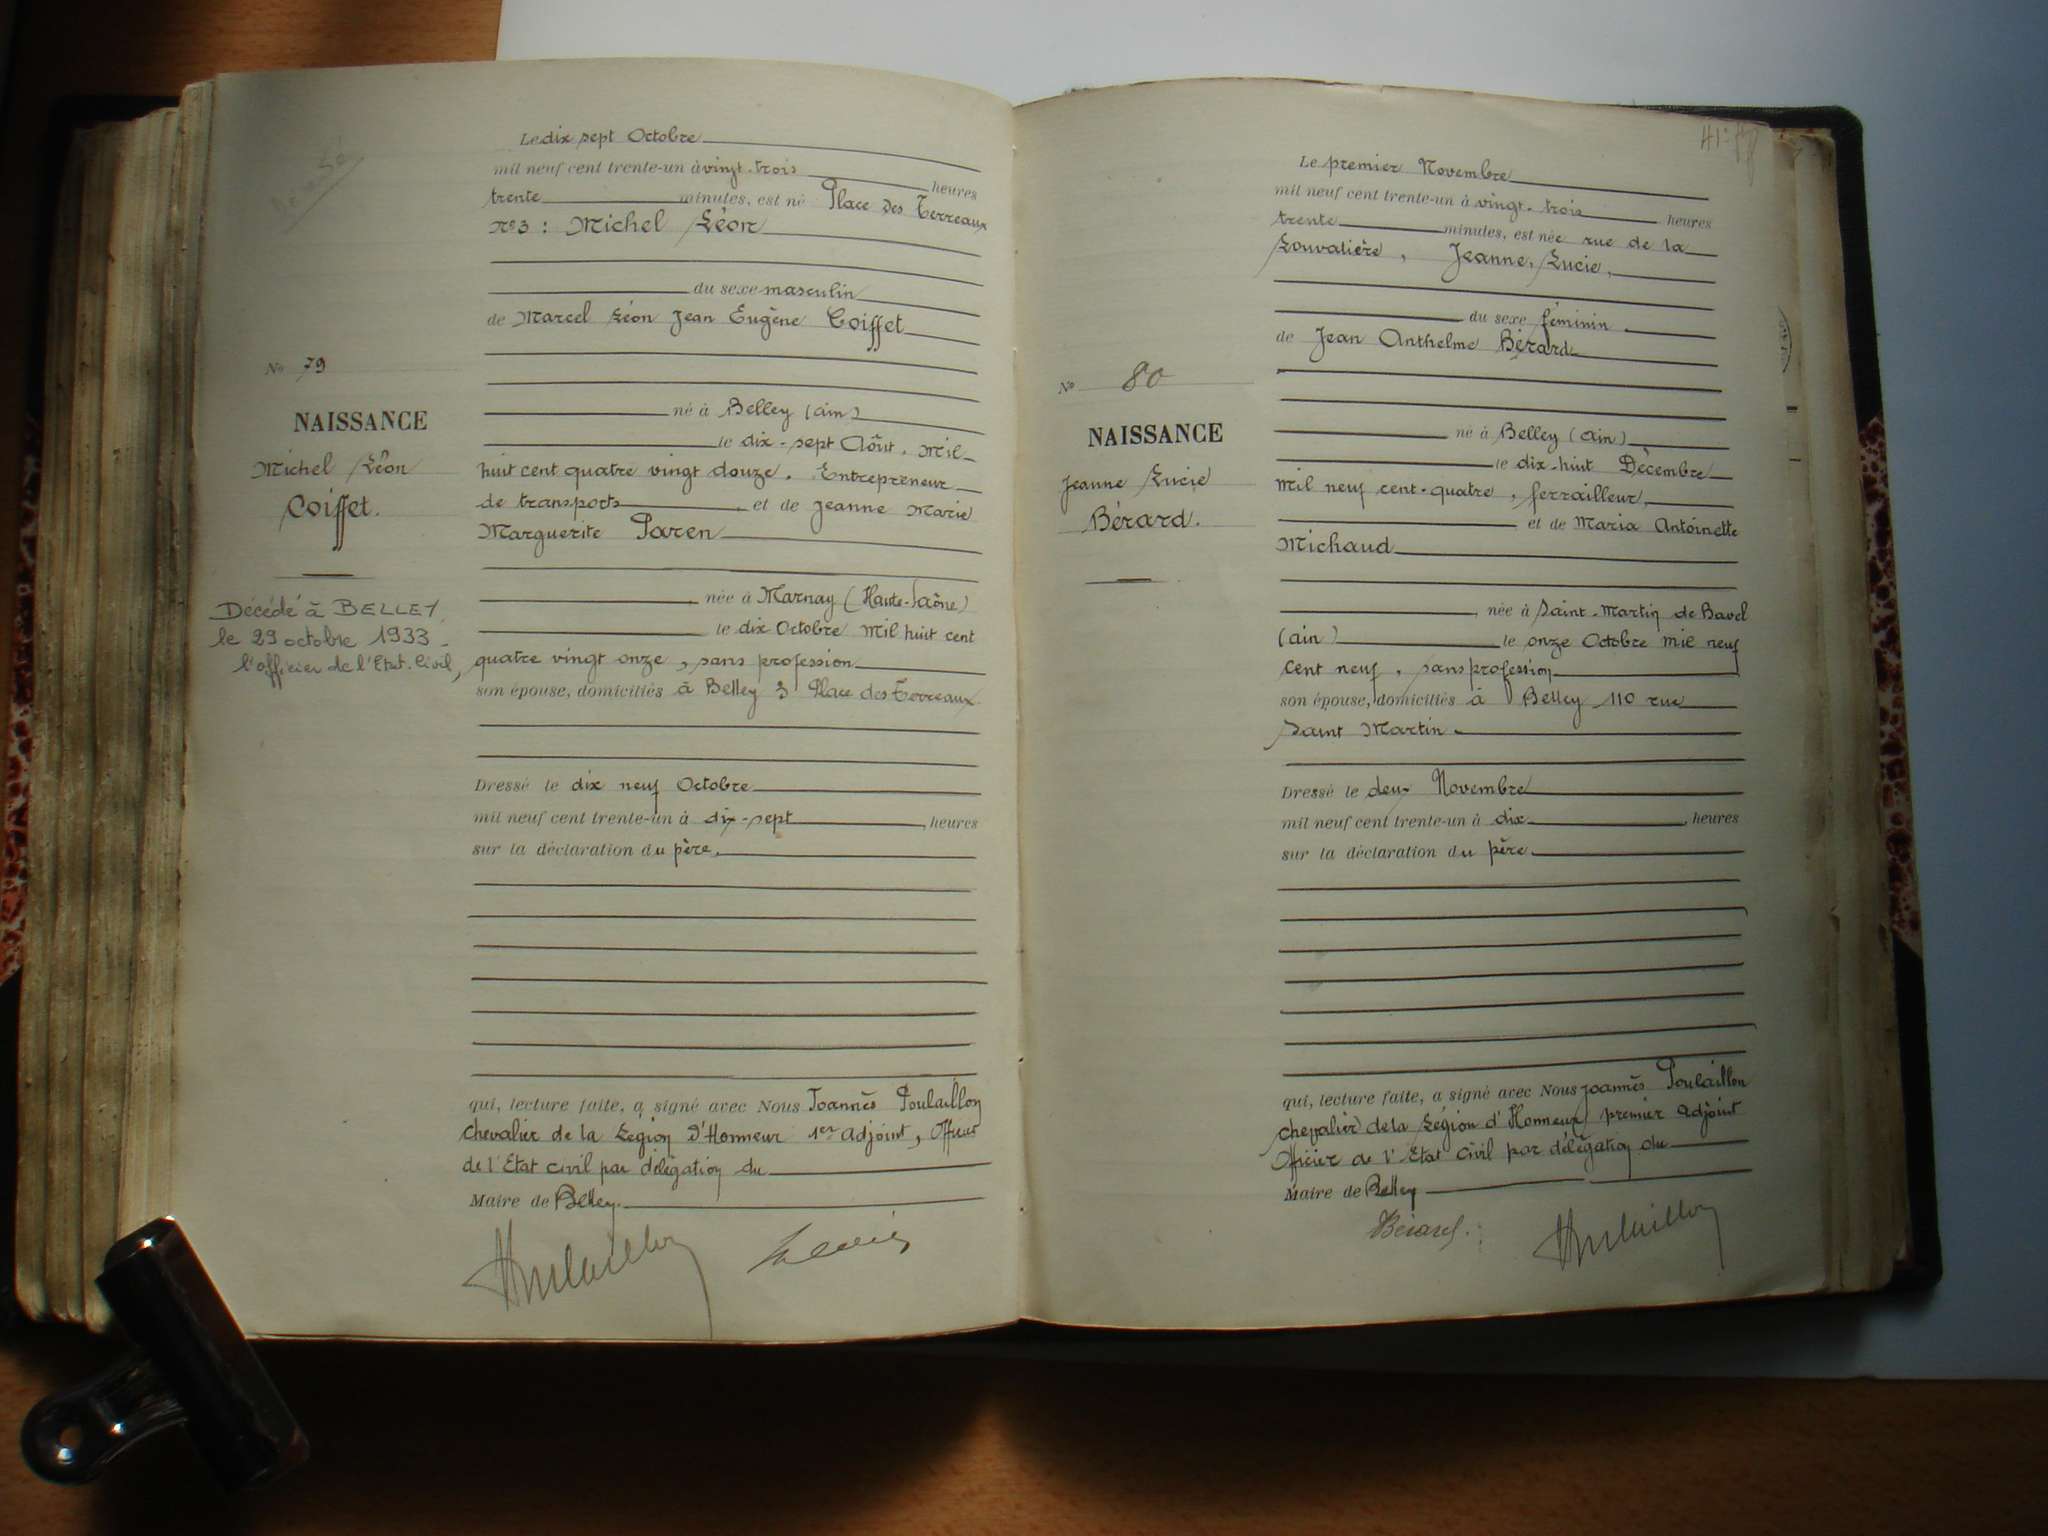 Le dix sept Octobre
mil neuf cent trente-un à vingt-trois heures
trente minutes, est né Place Des Terreaux
n°3 : Michel Léon
du sexe masculin
de Marcel Léon Jean Eugène Coiffet
né à Belley (ain)
le dix-sept Août. Mil
huit cent quatre vingt douze. Entrepreneur
de transports, et de Jeanne Marie
Marguerite Paren
née à Marnay (Haute-Saône)
le dix Octobre Mil huit cent
quatre vingt onze, sans profession
son épouse, domiciliés à Belley 3 Place des Terreaux
Dressé le dix neuf Octobre
mil neuf cent trente-un à dix-sept, heures
sur la déclaration du père.
qui, lecture faite, a signé avec Nous Joannès Poulaillon
Chevalier de la Légion D'Honneur 1er adjoint, Officier
de l'Etat civil par délégation du
Maire de Belley.
No 79
NAISSANCE
Michel Léon
Coiffet.
Décédé à BELLEY,
le 29 octobre 1933 -
l'officier de l'Etat-Civil,
Le premier Novembre
mil neuf cent trente-un à vingt-trois heures
trente minutes, est née rue de la
Louvatière, Jeanne, Lucie,
du sexe féminin
de Jean Anthelme Bérard
né à Belley (ain)
le dix-huit Décembre
mil neuf cent-quatre, ferrailleur,
et de Maria Antoinette
Michaud
, née à Saint-Martin de Bavel
(ain) le onze Octobre mil neuf
cent neuf, sans profession
son épouse, domiciliés à Belley 110 rue
Saint Martin.
Dressé le deux Novembre
mil neuf cent trente-un à dix, heures
sur la déclaration du père.
qui, lecture faite, a signé avec Nous Joannès Poulaillon
chevalier de la Légion d'Honneur premier adjoint
Officier de l'Etat Civil par délégation du
Maire de Belley
Bérard. Poulaillon
No 80
NAISSANCE
Jeanne Lucie
Bérard.